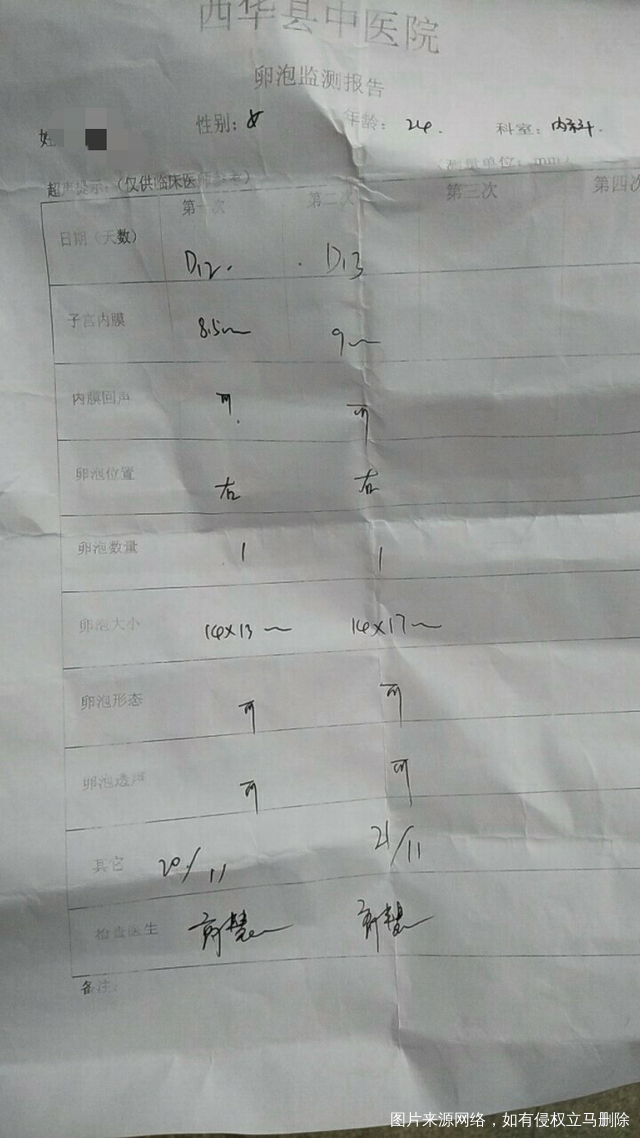 西华县中医院
卵泡监测报告
姓 性别：女 年龄：24. 科室：内科.
（测量单位：mm）
超声提示：（仅供临床医师参考）
第一次 第二次 第三次 第四次
日期（天数） D12. D13
子宫内膜 8.5mm 9mm
内膜回声 可 可
卵泡位置 右 右
卵泡数量 1 1
卵泡大小 14×13mm 14×17mm
卵泡形态 可 可
卵泡透声 可 可
其它 20/11 21/11
检查医生
备注：
图片来源网络，如有侵权立马删除